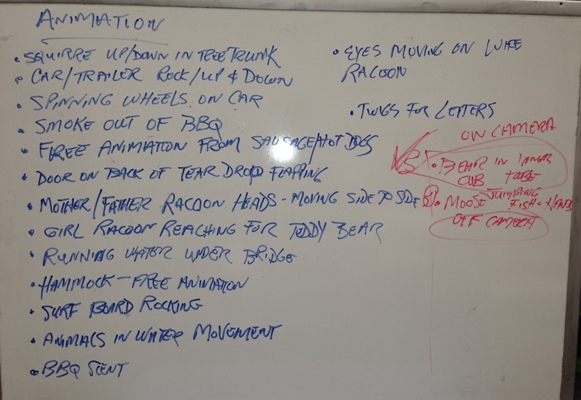 ANIMATION
• SQUIRRE UP/DOWN IN TREE TRUNK
• CAR/TRAILER ROCK/UP & DOWN
• SPINNING WHEELS ON CAR
• SMOKE OUT OF BBQ
• FIREE ANIMATION FROM SAUSAGE/HOT DOGS
• DOOR ON BACK OF TEAR DROP FLAPPING
• MOTHER/FATHER RACOON HEADS - MOVING SIDE TO SIDE
• GIRL RACOON REACHING FOR TEDDY BEAR
• RUNNING WATER UNDER BRIDGE
• HAMMOCK - FREE ANIMATION
• SURF BOARD ROCKING
• ANIMALS IN WATER MOVEMENT
• BBQ SCENT
• EYES MOVING ON
RACOON
• TWIGS FOR LETTERS
ON CAMERA
• BEAR IN INNER
CUB TUBE
• MOOSE JUMPING
FISH
OFF CAMERA